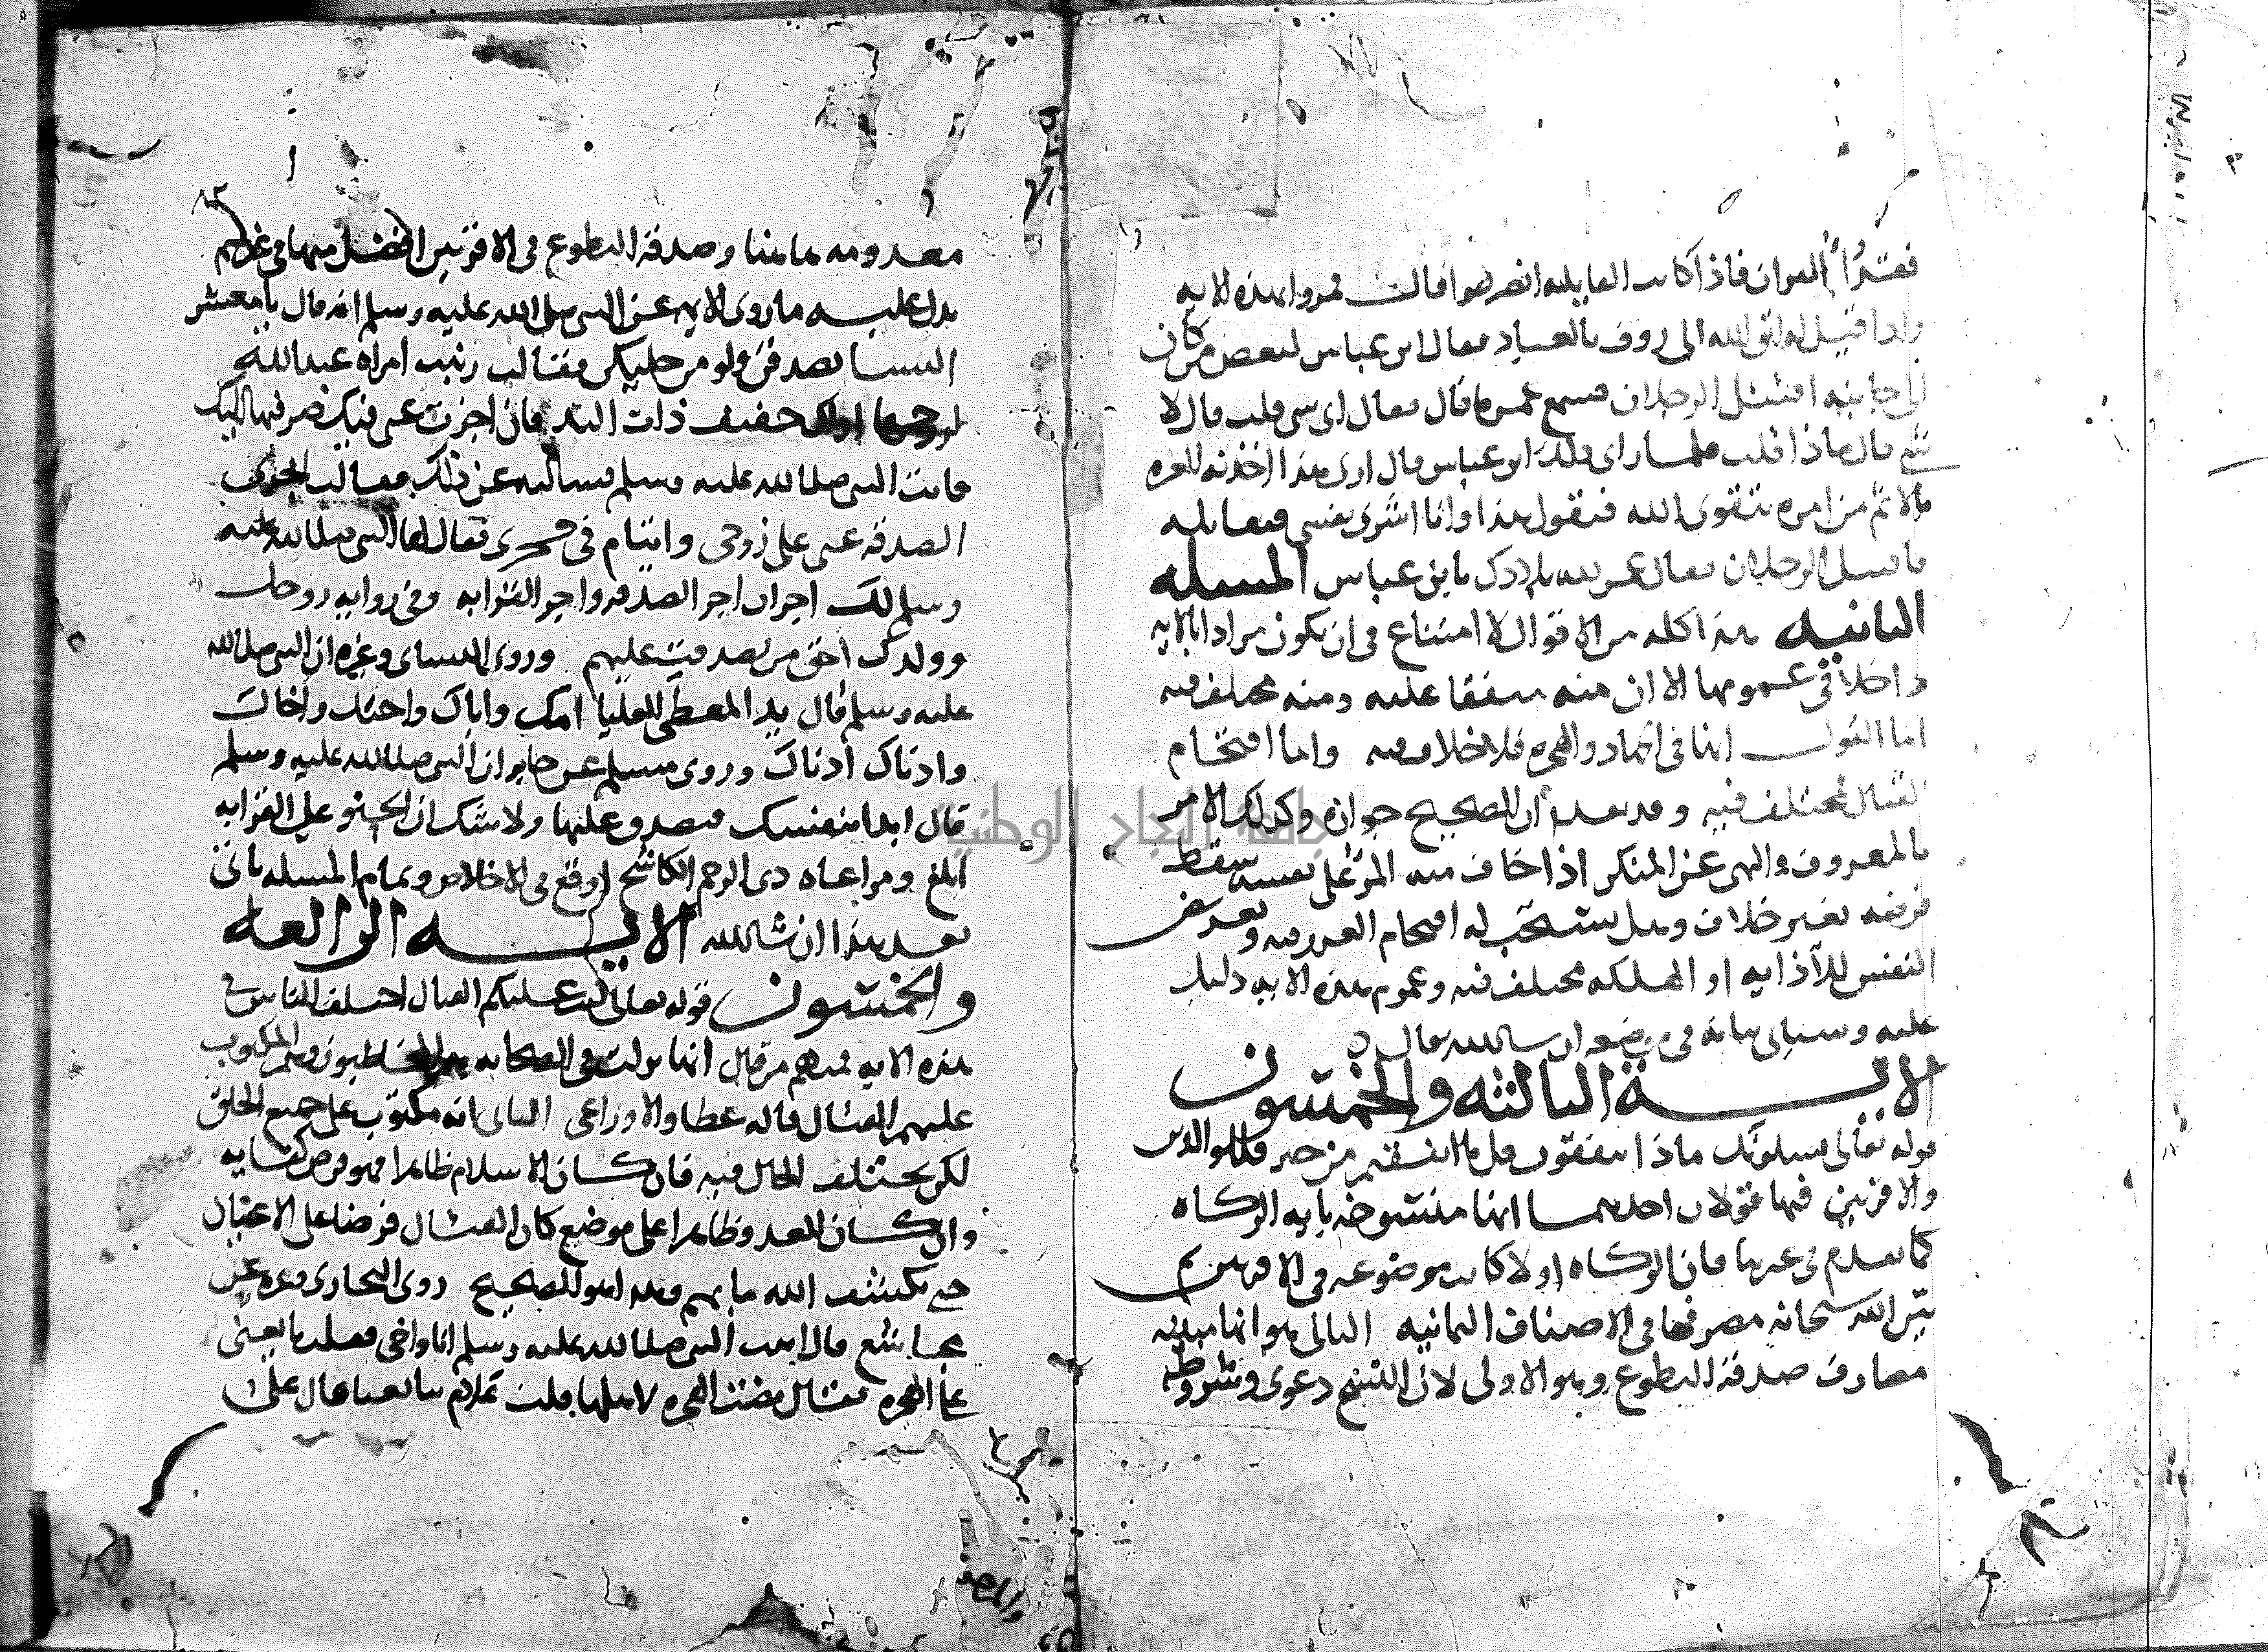 فيقرأ القران فاذا كانت القايلة انصرفوا قال فمروا بهذه الاية
واذا قيل له اتق الله الى رؤف بالعباد فقال ابن عباس لبعض من كان
الى جانبه اقتتل الرجلان فسمع عمر ما قال فقال اي شي قلت قال لا
شي قال ماذا قلت فلما راى ذلك ابن عباس قال ارى هذا اخذته العزة
بالاثم من امره بتقوى الله فيقول هذا وانا اشري نفسي فيقاتله
فاقتتل الرجلان فقال عمر لله بلادك يابن عباس المسله
الثانيه هذا كله من الاقوال لا امتناع في ان يكون مرادا بالايه
داخلا في عمومها الا ان منه متفقا عليه ومنه مختلف فيه
اما القول انها في الجهاد والهجره فلا خلاف فيه واما اقتحام
القتال مختلف فيه وقد تقدم ان الصحيح جوازه وكذلك الامر
بالمعروف والنهي عن المنكر اذا خاف منه المرؤ على نفسه سقط
فرضه بغير خلاف وهل يستحب له اقتحام الغرر فيه وتعريض
النفس للاذايه او الهلكه مختلف فيه وعموم هذه الايه دليل
عليه وسياتي بيانه في موضعه ان شاالله تعالى
الايــة الثالثه والخمسون
قوله تعالى يسلونك ماذا ينفقون قل ما انفقتم من خير فللوالدين
والاقربين فيها قولان احدهما انها منسوخه بايه الزكاه
كما تقدم في غيرها فان الزكاه اولا كانت موضوعه في الاقربين ثم
بين الله سبحانه مصرفها في الاصناف الثمانيه الثاني وهو انها مبينه
مصارف صدقة التطوع وهو الاولى لان النسخ دعوى وشروطه
معدومه هاهنا وصدقة التطوع في الاقربين افضل منها في غيرهم
يدل عليه ما روى الايمه عن النبي صلى الله عليه وسلم انه قال يا معشر
النسا تصدقن ولو من حليكن فقالت زينب امراه عبدالله
لزوجها اراك خفيف ذات اليد فان اجزت عني فيك صرفتها اليك
فاتت النبي صلى الله عليه وسلم فسالته عن ذلك فقالت اتجزي
الصدقه عني على زوجي وايتام في حجري فقال لها النبي صلى الله عليه
وسلم لك اجران اجر الصدقه واجر القرابه وفي روايه زوجك
وولدك احق من تصدقت عليهم وروى النساي وغيره ان النبي صلى الله
عليه وسلم قال يد المعطي العليا امك واباك واختك واخاك
وادناك ادناك وروى مسلم عن جابر ان النبي صلى الله عليه وسلم
قال ابدا بنفسك فتصدق عليها ولا شك ان الحنو على القرابه
ابلغ ومراعاه ذي الرحم الكاشح اوقع في الاخلاص وتمام المسله ياتي
بعد هذا ان شاالله الايــه الرابعه
والخمسون قوله تعالى كتب عليكم القتال اختلف الناس في
هذه الايه فمنهم من قال انها نزلت في الصحابه هم المخاطبون وهم المكتوب
عليهم القتال قاله عطا والاوزاعي الثاني انه مكتوب على جميع الخلق
لكن يختلف الحال فيه فان كان الاسلام ظاهرا فهو فرض كفايه
وان كان العدو ظاهرا على موضع كان القتال فرضا على الاعيان
حتى يكشف الله ما بهم وهذا هو الصحيح روى البخاري وغيره عن
مجاشع قال اتيت النبي صلى الله عليه وسلم انا واخي فقلت بايعني
على الهجره فقال مضت الهجره لاهلها قلت علام تبايعنا قال على
جامعة النجاح الوطنية